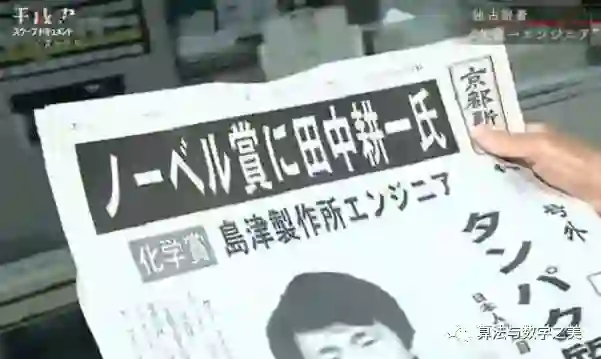 スクープドキュメント
独占密着
エンジニア
京都新
ノーベル賞に田中耕一氏
化学賞
島津製作所エンジニア
号外
タンパク
日本人
算法与数字之美